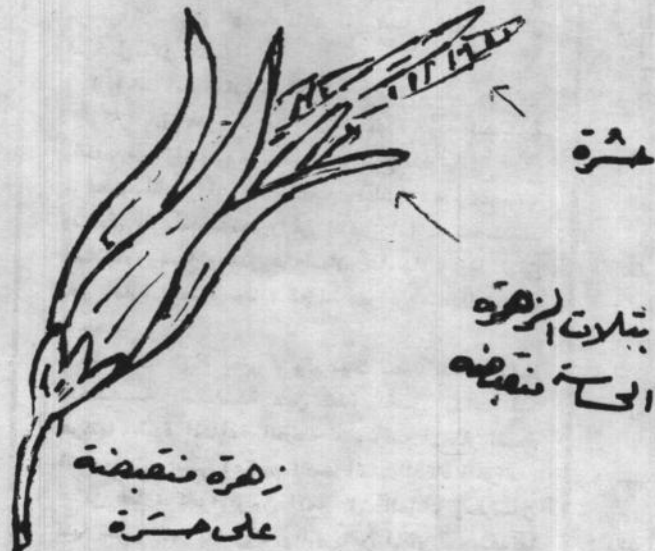 حشرة
بتلات الزهرة
الحاسة منقبضه
زهرة منقبضة
على حشرة